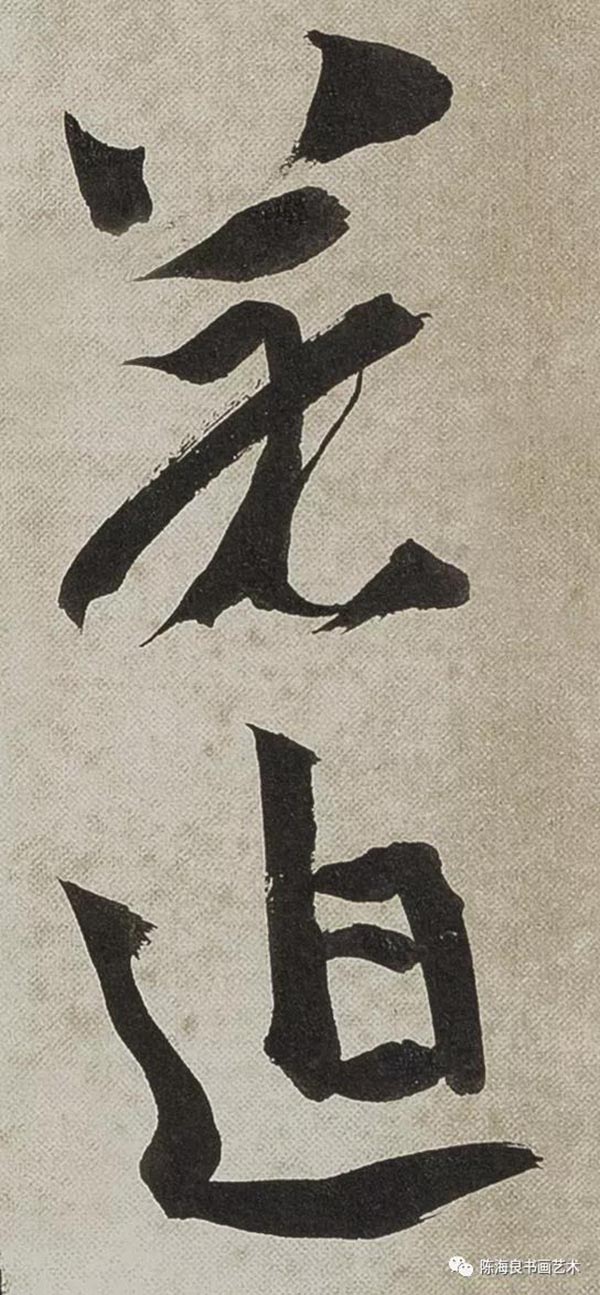 差迫
陈海良书画艺术